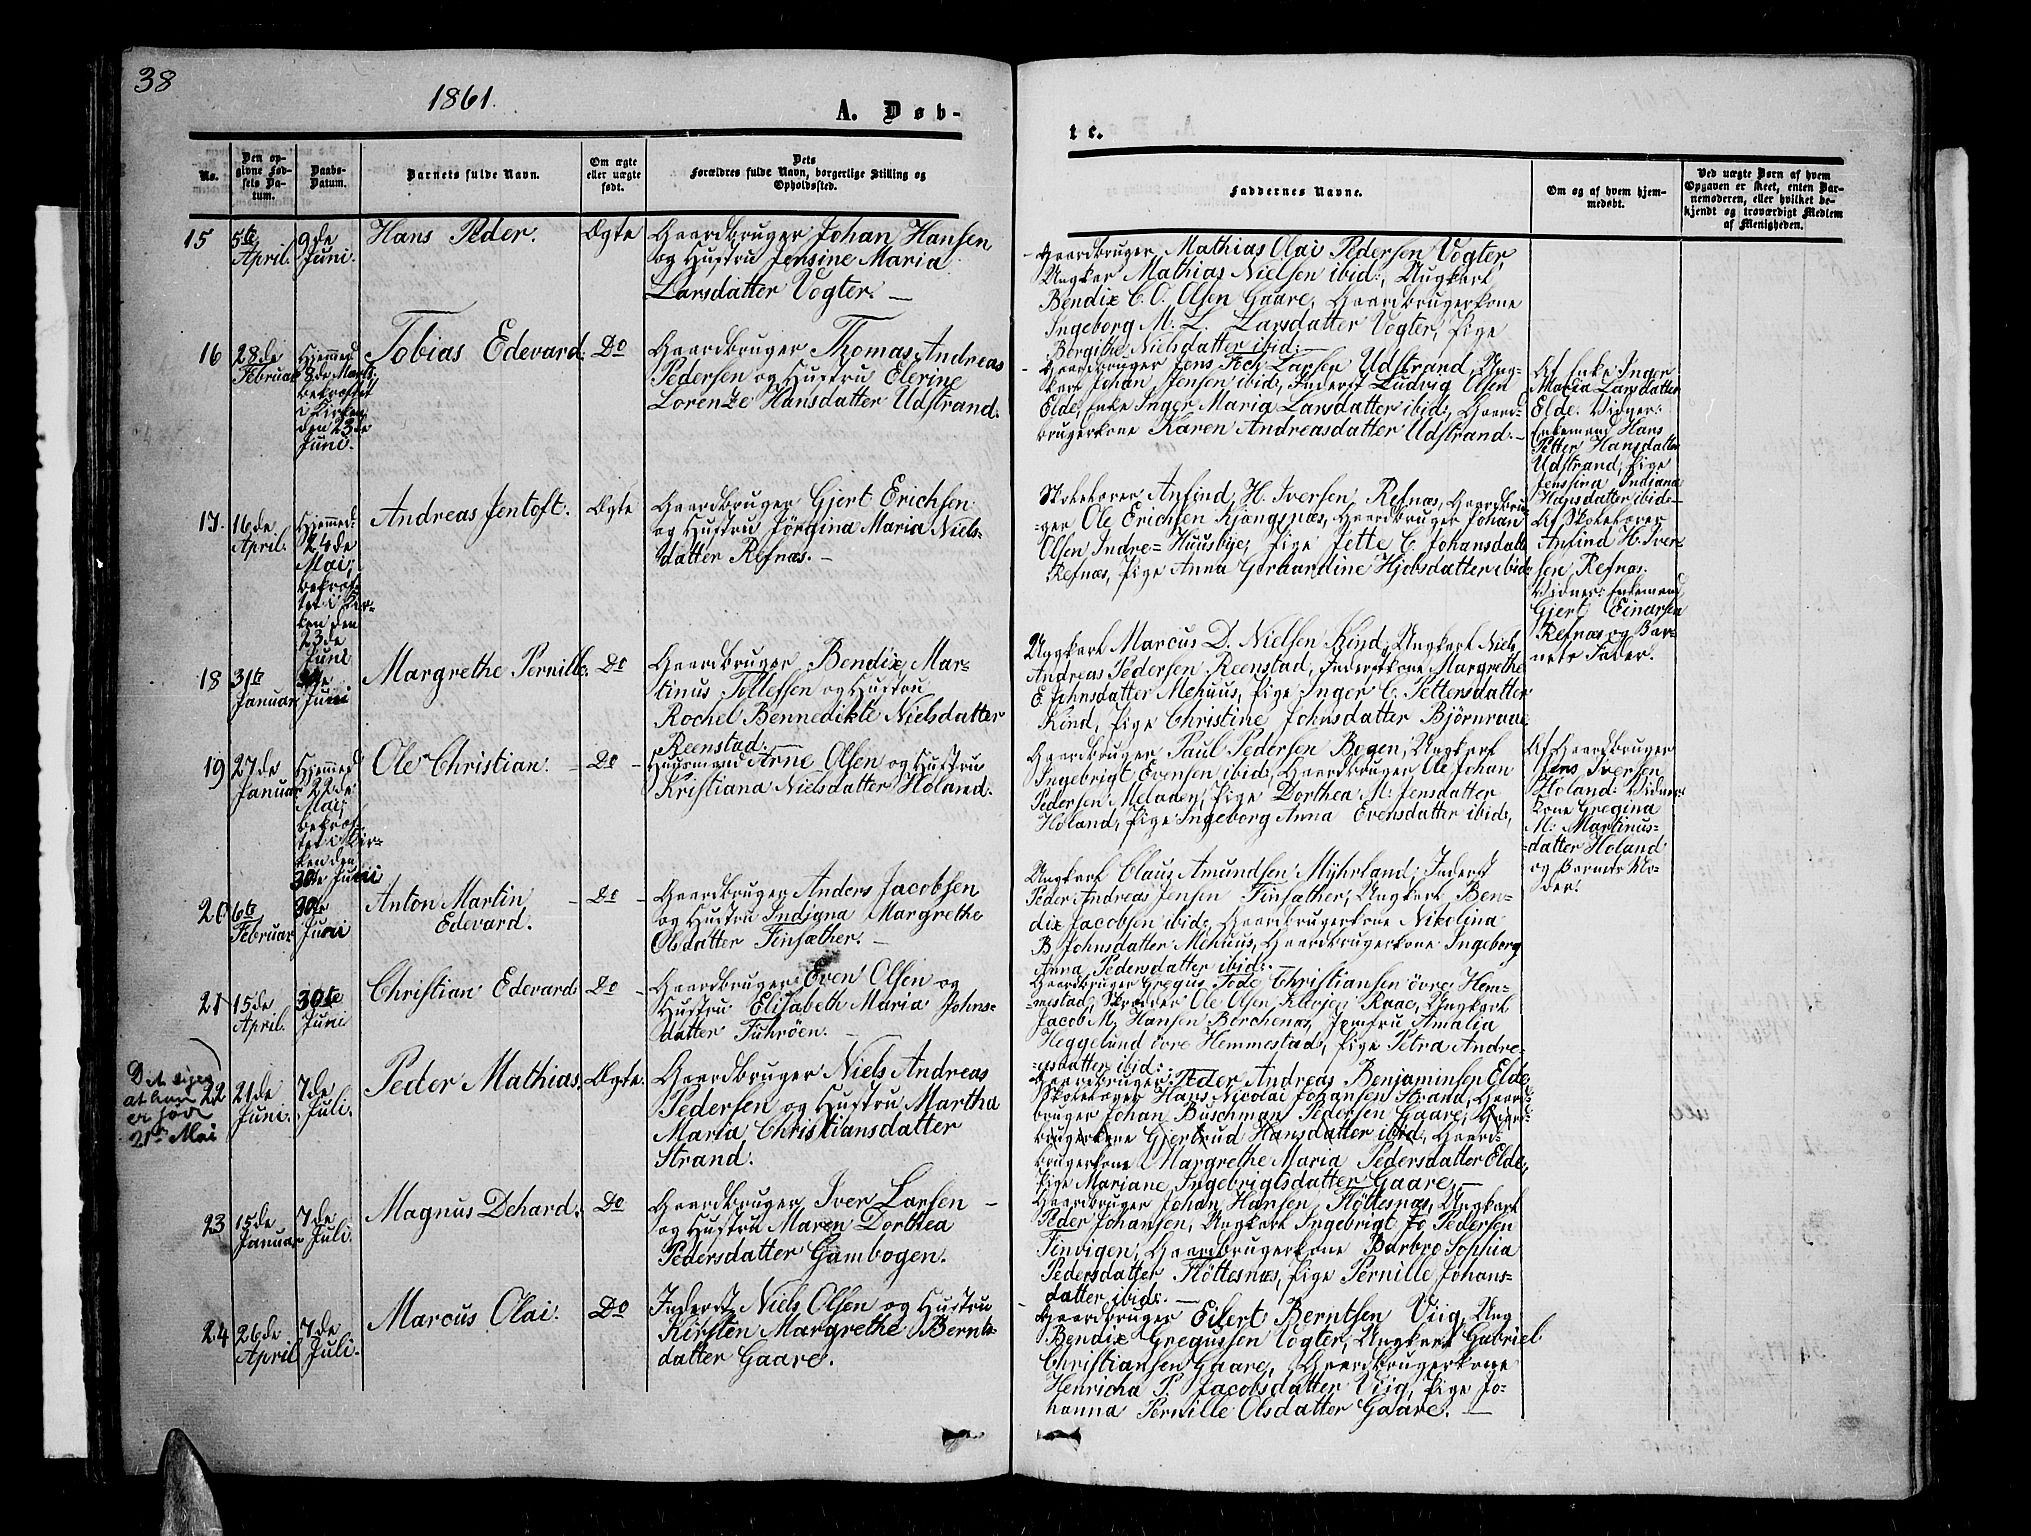 38
1861.
A. Døb-
te.
No.
Den op-
givne Fød-
sels Da-
tum.
Daabs-
Datum.
Barnets fulde Navn.
Om ægte
eller uægte
født.
Dets
Forældres fulde Navn, borgerlige Stilling og
Opholdssted.
Faddernes Navne.
Om og af hvem hjem-
medøbt.
Ved uægte Børn af hvem
Opgaven er skeet, enten Bar-
nemoderen, eller hvilket be-
kjendt og troværdigt Medlem
af Menigheden.
15
5te
April.
9de
Juni.
Hans Peder.
Ægte
Gaardbruger Johan Hansen
og Hustru Jensine Maria
Larsdatter Vogter. —
Gaardbruger Mathias Olai Pedersen Vogter,
Ungkar Mathias Nielsen ibid:, Ungkarl
Bendix C. O. Olsen Gaare, Gaardbrugerkone
Ingeborg M. L. Larsdatter Vogter, Pige
Bergithe Nielsdatter ibid: —
16
28de
Februar
Hjemmed.
8de Marts
bekræftet
i Kirken
den 23de
Juni.
Tobias Edevard.
Do
Gaardbruger Thomas Andreas
Pedersen og Hustru Elerine
Lorenze Hansdatter Udstrand.
Gaardbruger Jens Foch Larsen Udstrand, Ung-
karl Johan Jensen ibid:, Inderst Ludvig Olsen
Elde, Enke Inger Maria Larsdatter ibid:, Gaard-
brugerkone Karen Andreasdatter Udstrand. —
Af Enke Inger
Maria Larsdatter
Elde. Vidner:
Enkemand Hans
Petter Hansdatter
Udstrand, Pige
Jenssina Indiana
Hansdatter ibid: —
17.
16de
April.
Hjemmed:
24de
Mai,
bekræf-
tet i Kir-
ken den
23de
Juni
Andreas Jentoft.
Ægte
Gaardbruger Gjert Erichsen
og Hustru Jørgina Maria Niels-
datter Refnæs. —
Skolelærer Anfind H. Iversen Refnæs, Gaardbru-
ger Ole Erichsen Kjøngsnæs, Gaardbruger Johan
Olsen Indre-Huusbye, Pige Jette C. Johansdatt:
Refnæs, Pige Anna Geraardine Hjobsdatter ibid:
Af Skolelærer
Anfind H. Iver-
sen Refnæs.
Vidner: Enkemand
Gjert Einarsen
Refnæs og Bar-
nets Fader.
18
31te
Januar
Juni
Margrethe Pernille.
Do
Gaardbruger Bendix Mar-
tinus Tollefsen og Hustru
Rachel Bennedikte Nielsdatter
Reenstad. —
Ungkarl Marcus D. Nielsen Kind, Ungkarl Niels
Andreas Pedersen Reenstad, Inderstkone Margrethe
E. Johnsdatter Mehuus, Pige Inger C. Pettersdatter
Kind, Pige Christine Johnsdatter Bjørnraae
19
27de
Januar
Hjemmed
22de
Mai,
bekræf-
tet i Kir-
ken den
30te Juni
Ole Christian.
Do
Huusmand Arne Olsen og Hustru
Kristiana Nielsdatter Holand.
Gaardbruger Paul Pedersen Bogen, Ungkarl
Ingebrigt Evensen ibid:, Gaardbruger Ole Johan
Pedersen Melaaen, Pige Dorthea M. Jensdatter
Holand, Pige Ingeborg Anna Evensdatter ibid:,
Af Gaardbruger
Jens Iversen
Holand. Vidner:
Kone Gregina
M: Martinus-
datter Holand
og Barnets Mo-
der.
20
6te
Februar
30te
Juni
Anton Martin
Edevard.
Do
Gaardbruger Anders Jacobsen
og Hustru Indiana Margrethe
Olsdatter Finsæther. —
Ungkarl Claus Amundsen Myhrland, Inderst
Peder Andreas Jensen Finsæther, Ungkarl Ben-
dix Jacobsen ibid:, Gaardbrugerkone Nikolina
B. Johnsdatter Mehuus, Gaardbrugerkone Ingeborg
Anna Pedersdatter ibid: —
21
15de
April.
30te
Juni
Christian Edevard
Do
Gaardbruger Even Olsen og
Hustru Elisabeth Maria Johns-
datter Fuhrøen. —
Gaardbruger Gregus Tode Christiansen övre Hem-
mestad, Skrædder Ole Olsen, Ungkarl
Jacob M. Hansen Borchenæs, Jomfru Amalia
Heggelund övre Hemmestad, Pige Petra Andre-
asdatter ibid:
Det siges
at han
er född
21de Mai
22
21de
Juni.
7de
Juli.
Peder Mathias.
Ægte.
Gaardbruger Niels Andreas
Pedersen og Hustru Martha
Maria Christiansdatter
Strand.
Gaardbruger Peder Andreas Benjaminsen Elde,
Skolelærer Hans Nicolai Johansen Strand, Gaard-
bruger Johan Buschman Pedersen Gaare, Gaard-
brugerkone Gjertrud Hansdatter ibid, Gaard-
brugerkone Margrethe Maria Pedersdatter Elde,
Pige Mariane Ingebrigtsdatter Gaare. —
23
15de
Januar
7de
Juli.
Magnus Dehard.
Do
Gaardbruger Iver Larsen
og Hustru Maren Dorthea
Pedersdatter Gambogen.
Gaardbruger Johan Hansen Fløttesnæs, Ungkarl
Peder Johansen, Ungkarl Ingebrigt Jo Pedersen
Finvigen, Gaardbrugerkone Barbro Sophia
Pedersdatter Fløttesnæs, Pige Pernille Johans-
datter ibid: —
24
26de
April
7de
Juli.
Marcus Olai.
Do
Inderst Niels Olsen og Hustru
Kirsten Margrethe Bernts-
datter Gaare.
Gaardbruger Eilert Berntsen Viig, Ung
Bendix Gregussen Vogter, Ungkarl Gabriel
Christiansen Gaare, Gaardbrugerkone
Henricha P. Jacobsdatter Viig, Pige Jo-
hanna Pernille Olsdatter Gaare. —